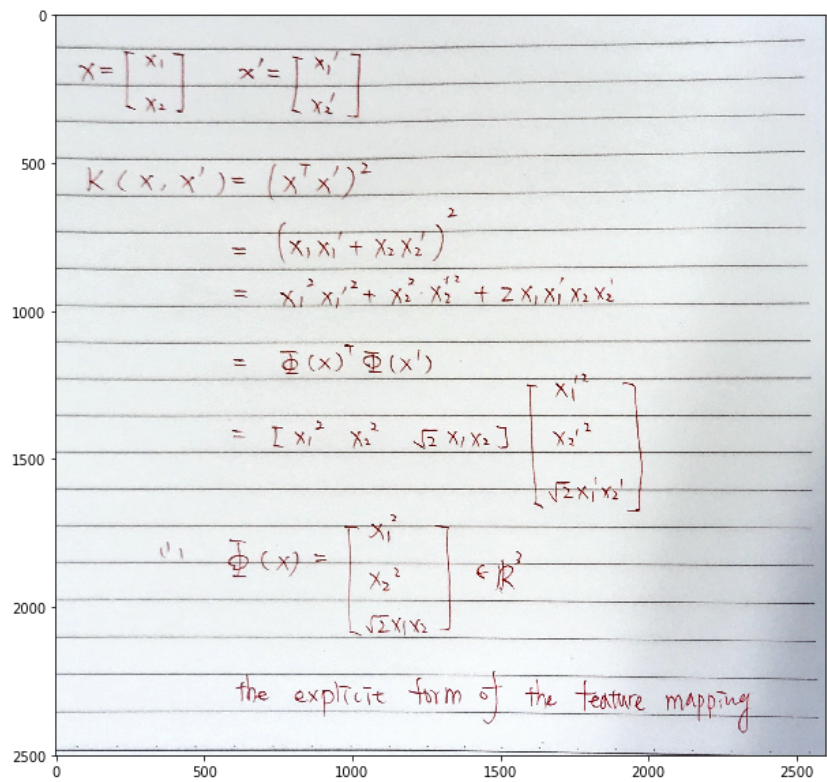 0
500
1000
1500
2000
2500
x = [ x₁ x₂ ] x' = [ x₁' x₂' ]
K ( x, x' ) = (xᵀ x')²
= (x₁ x₁' + x₂ x₂')²
= x₁² x₁'² + x₂² · x₂'² + 2 x₁ x₁' x₂ x₂'
= Φ (x)ᵀ Φ (x')
= [ x₁² x₂² √2 x₁ x₂ ] [ x₁'² x₂'² √2 x₁' x₂' ]
Φ (x) = [ x₁² x₂² √2 x₁ x₂ ] ∈ ℝ³
the explicit form of the feature mapping
0 500 1000 1500 2000 2500